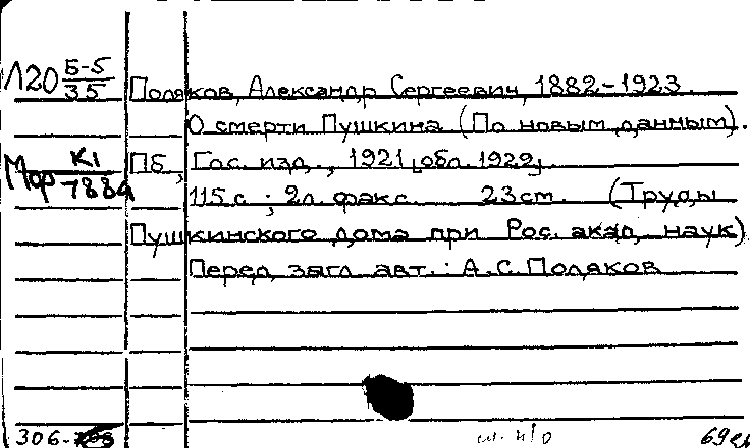 Л20 Б-5/35
Поляков, Александр Сергеевич, 1882-1923.
О смерти Пушкина (По новым данным).
Мор К1/788а
Пб., Гос. изд., 1921 [обл. 1922].
115 с.; 2 л. факс. 23 см. (Труды
Пушкинского дома при Рос. акад. наук)
Перед загл. авт.: А. С. Поляков
306-